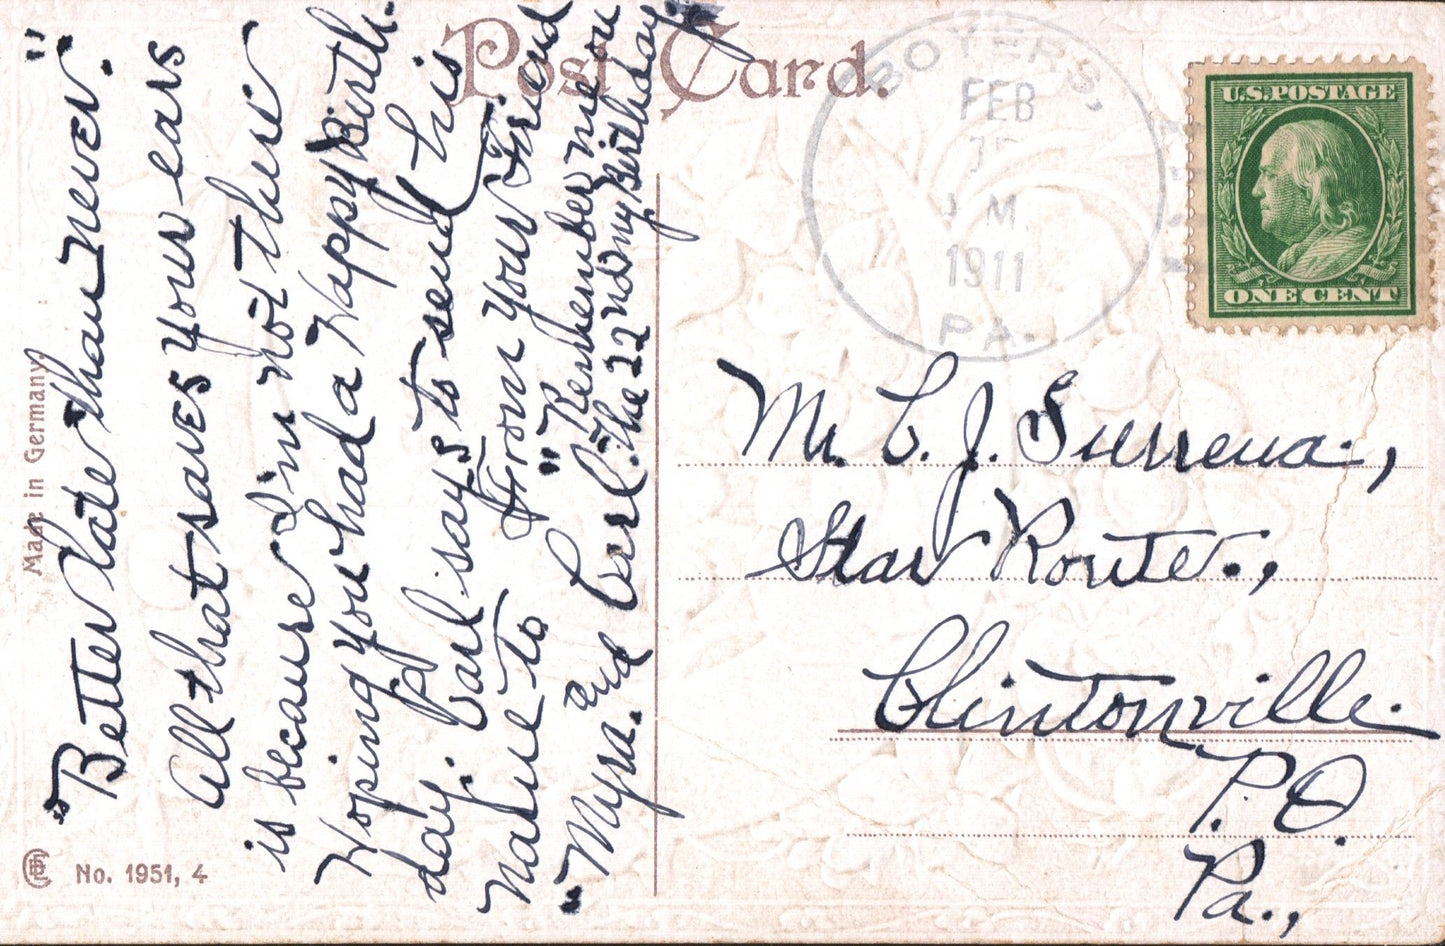 Post Card.
Made in Germany
No. 1951, 4
"Better late than never."
All that saves your ears
is because I'm not there
Hoping you had a Happy Birth-
day. Carl says to send his
name to
From your Friend
"Myra. and Carl.
"Remember me on
the 22nd my Birthday."
BOYERS,
FEB
M
1911
PA.
U.S.POSTAGE
ONE CENT
Mr. C. J. Surrena.,
Star Route.,
Clintonville.
P.O.
Pa.,